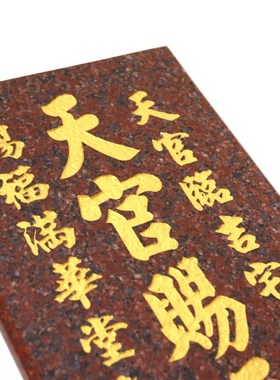 天官臨吉宅
天官賜
賜福滿華堂